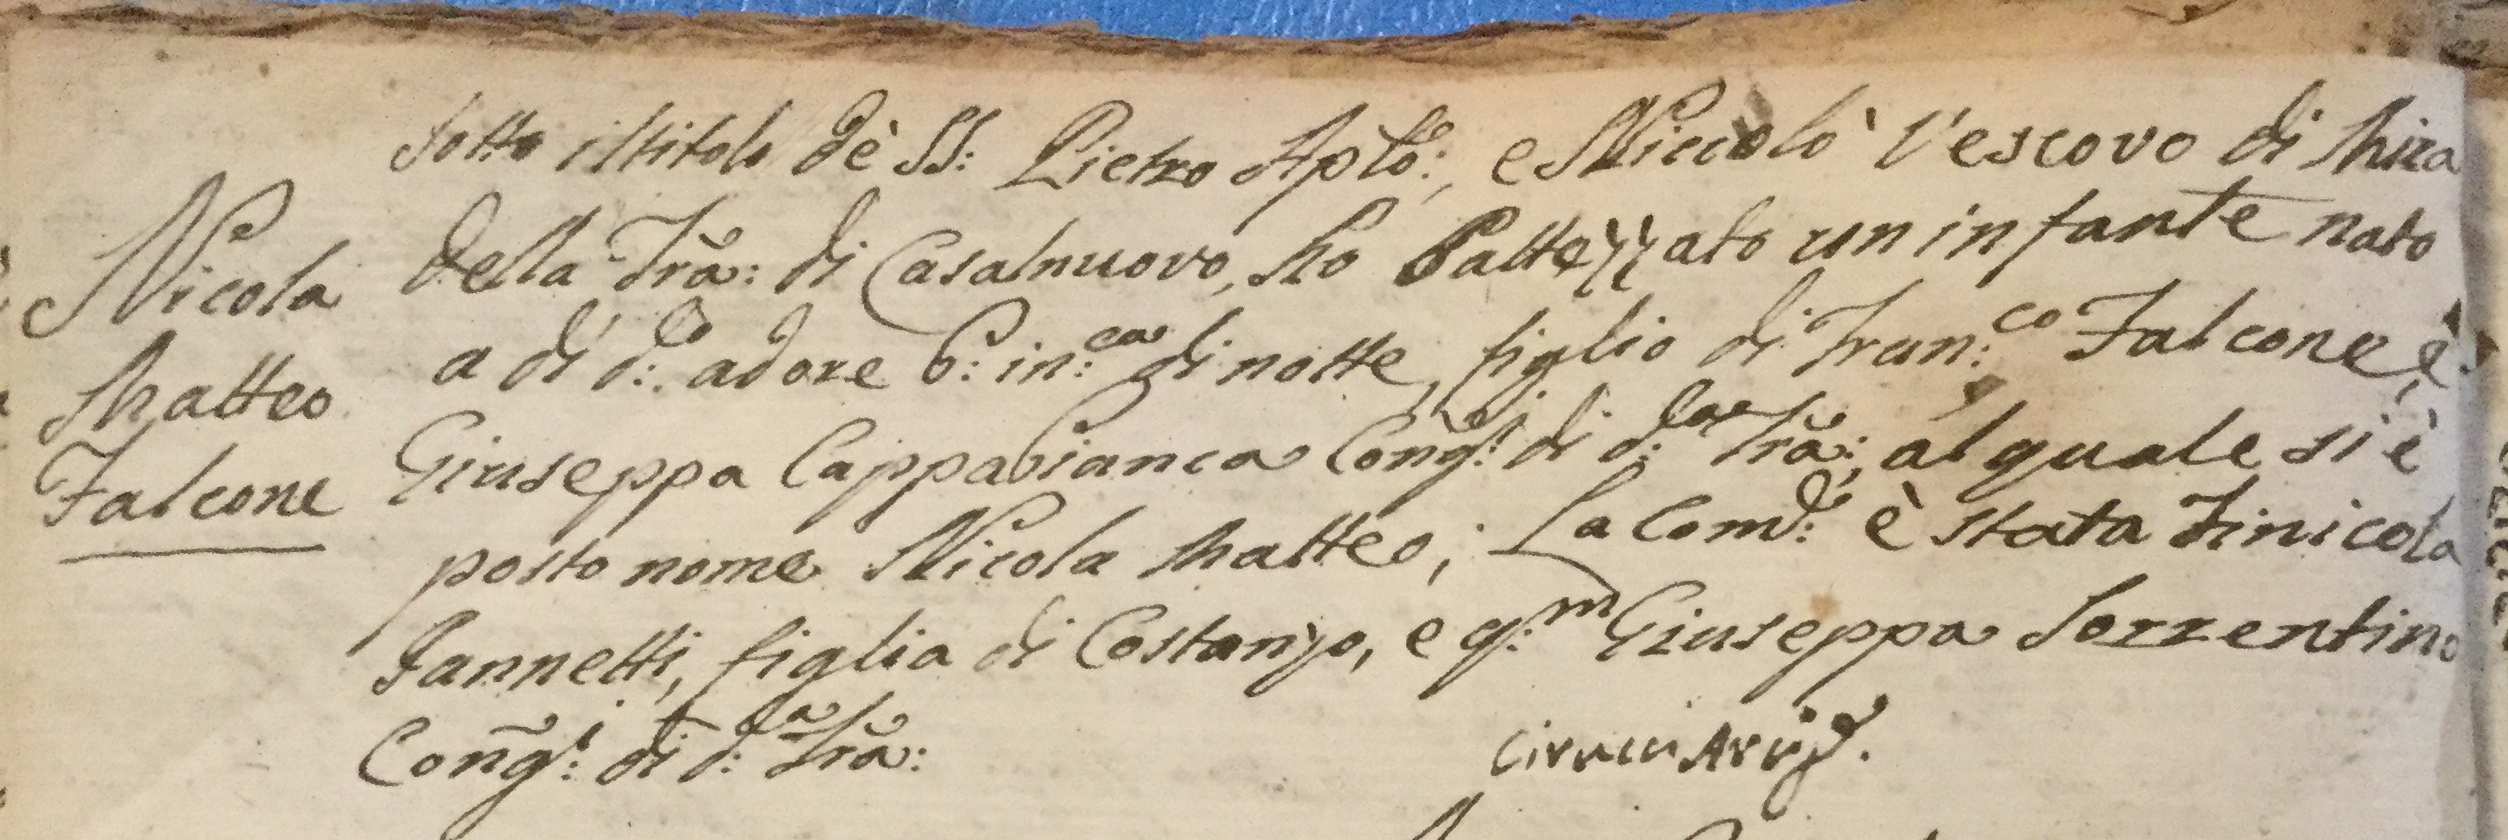 sotto il titolo dè SS: Pietro Aplo:, e Niccolò Vescovo di Mira
Nicola
della Trà: di Casalnuovo, ho battezzato un infante nato
a dì d:lo ad ore 6: in:ca di notte, figlio di Fran:co Falcone, è
Matteo
Giuseppa Cappabianca Cong:i di d:la Trà:, al quale si è
Falcone
posto nome Nicola Matteo; La Com:e è stata Finicola
Iannetti, figlia di Costanzo, e q:m Giuseppa Sorrentino
Cong:i di d:a Trà: